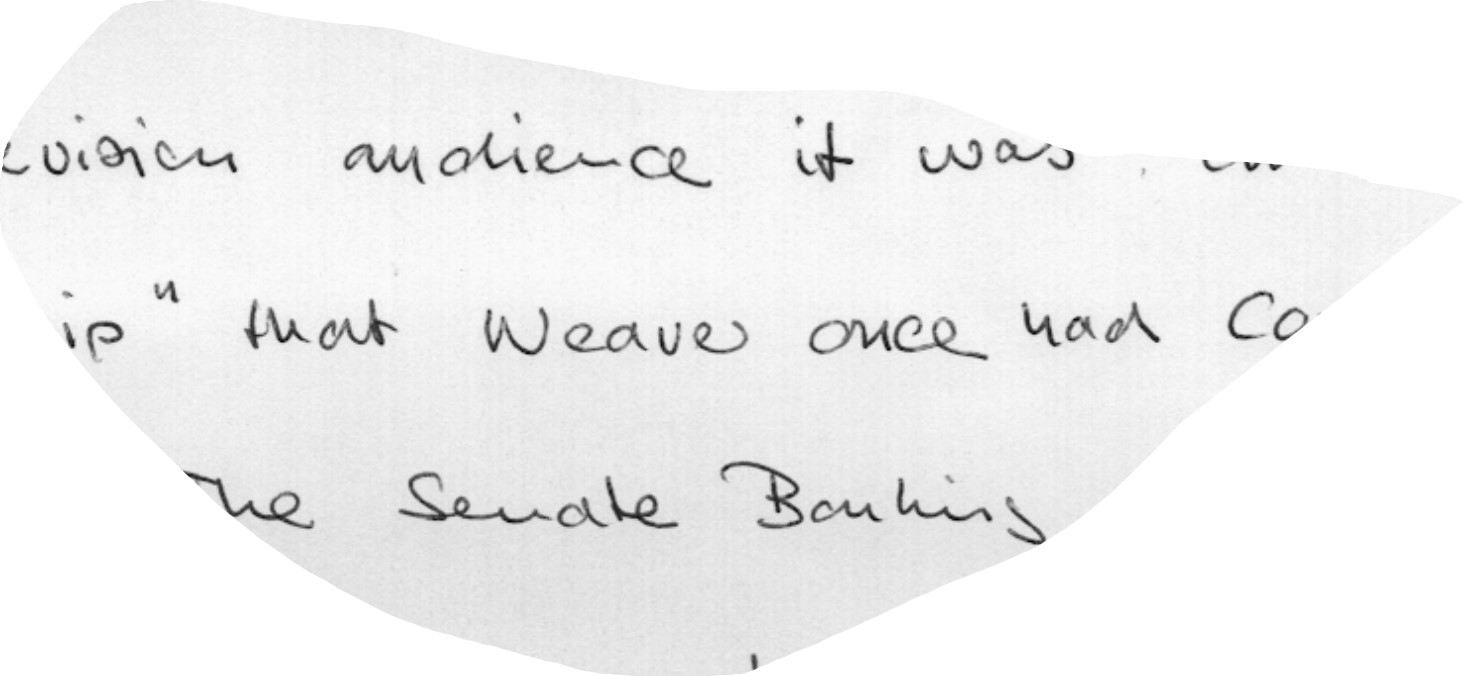 evision audience it was
ip" that Weaver once had Co
The Senate Banking